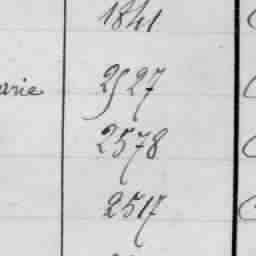 1841
arie 2527
2578
2517